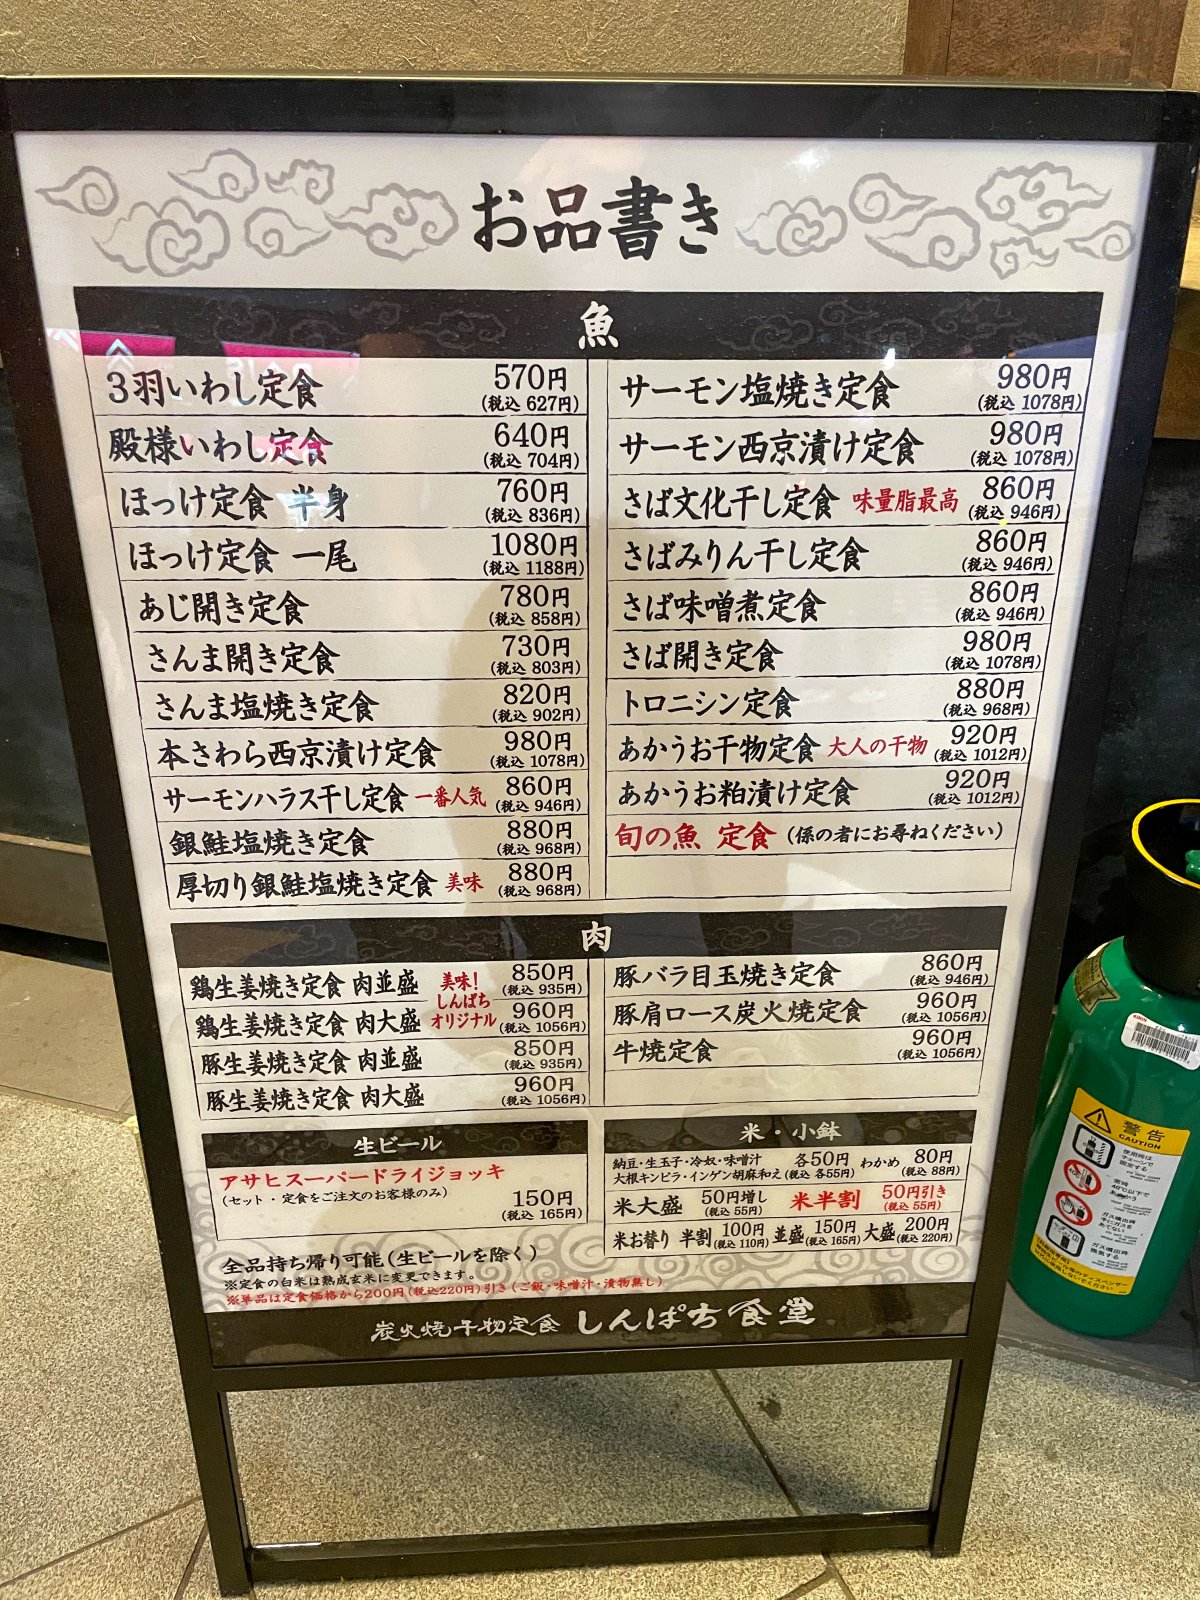 お品書き
魚
3羽いわし定食 570円
(税込 627円)
殿様いわし定食 640円
(税込 704円)
ほっけ定食 半身 760円
(税込 836円)
ほっけ定食 一尾 1080円
(税込 1188円)
あじ開き定食 780円
(税込 858円)
さんま開き定食 730円
(税込 803円)
さんま塩焼き定食 820円
(税込 902円)
本さわら西京漬け定食 980円
(税込 1078円)
サーモンハラス干し定食 一番人気 860円
(税込 946円)
銀鮭塩焼き定食 880円
(税込 968円)
厚切り銀鮭塩焼き定食 美味 880円
(税込 968円)
サーモン塩焼き定食 980円
(税込 1078円)
サーモン西京漬け定食 980円
(税込 1078円)
さば文化干し定食 味量脂最高 860円
(税込 946円)
さばみりん干し定食 860円
(税込 946円)
さば味噌煮定食 860円
(税込 946円)
さば開き定食 980円
(税込 1078円)
トロニシン定食 880円
(税込 968円)
あかうお干物定食 大人の干物 920円
(税込 1012円)
あかうお粕漬け定食 920円
(税込 1012円)
旬の魚 定食 (係の者にお尋ねください)
肉
鶏生姜焼き定食 肉並盛 850円
(税込 935円)
美味!
しんぱち
オリジナル
鶏生姜焼き定食 肉大盛 960円
(税込 1056円)
豚生姜焼き定食 肉並盛 850円
(税込 935円)
豚生姜焼き定食 肉大盛 960円
(税込 1056円)
豚バラ目玉焼き定食 860円
(税込 946円)
豚肩ロース炭火焼定食 960円
(税込 1056円)
牛焼定食 960円
(税込 1056円)
生ビール
アサヒスーパードライジョッキ
(セット・定食をご注文のお客様のみ) 150円
(税込 165円)
米・小鉢
納豆・生玉子・冷奴・味噌汁 各50円 わかめ 80円
大根キンピラ・インゲン胡麻和え (税込 各55円) (税込 88円)
米大盛 50円増し 米半割 50円引き
(税込 55円) (税込 55円)
米お替り 半割 100円 並盛 150円 大盛 200円
(税込 110円) (税込 165円) (税込 220円)
全品持ち帰り可能(生ビールを除く)
※定食の白米は熟成玄米に変更できます。
※単品は定食価格から200円(税込220円)引き(ご飯・味噌汁・漬物無し)
炭火焼干物定食 しんぱち食堂
警告
CAUTION